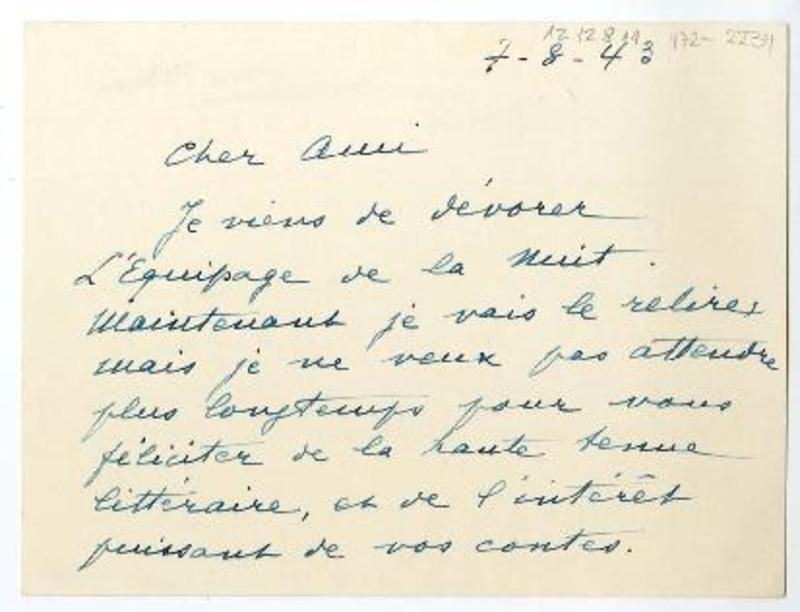 7-8-43
Cher Ami
Je viens de dévorer
L'Equipage de la Nuit.
Maintenant je vais le relire,
mais je ne veux pas attendre
plus longtemps pour vous
féliciter de la haute tenue
littéraire, et de l'intérêt
puissant de vos contes.